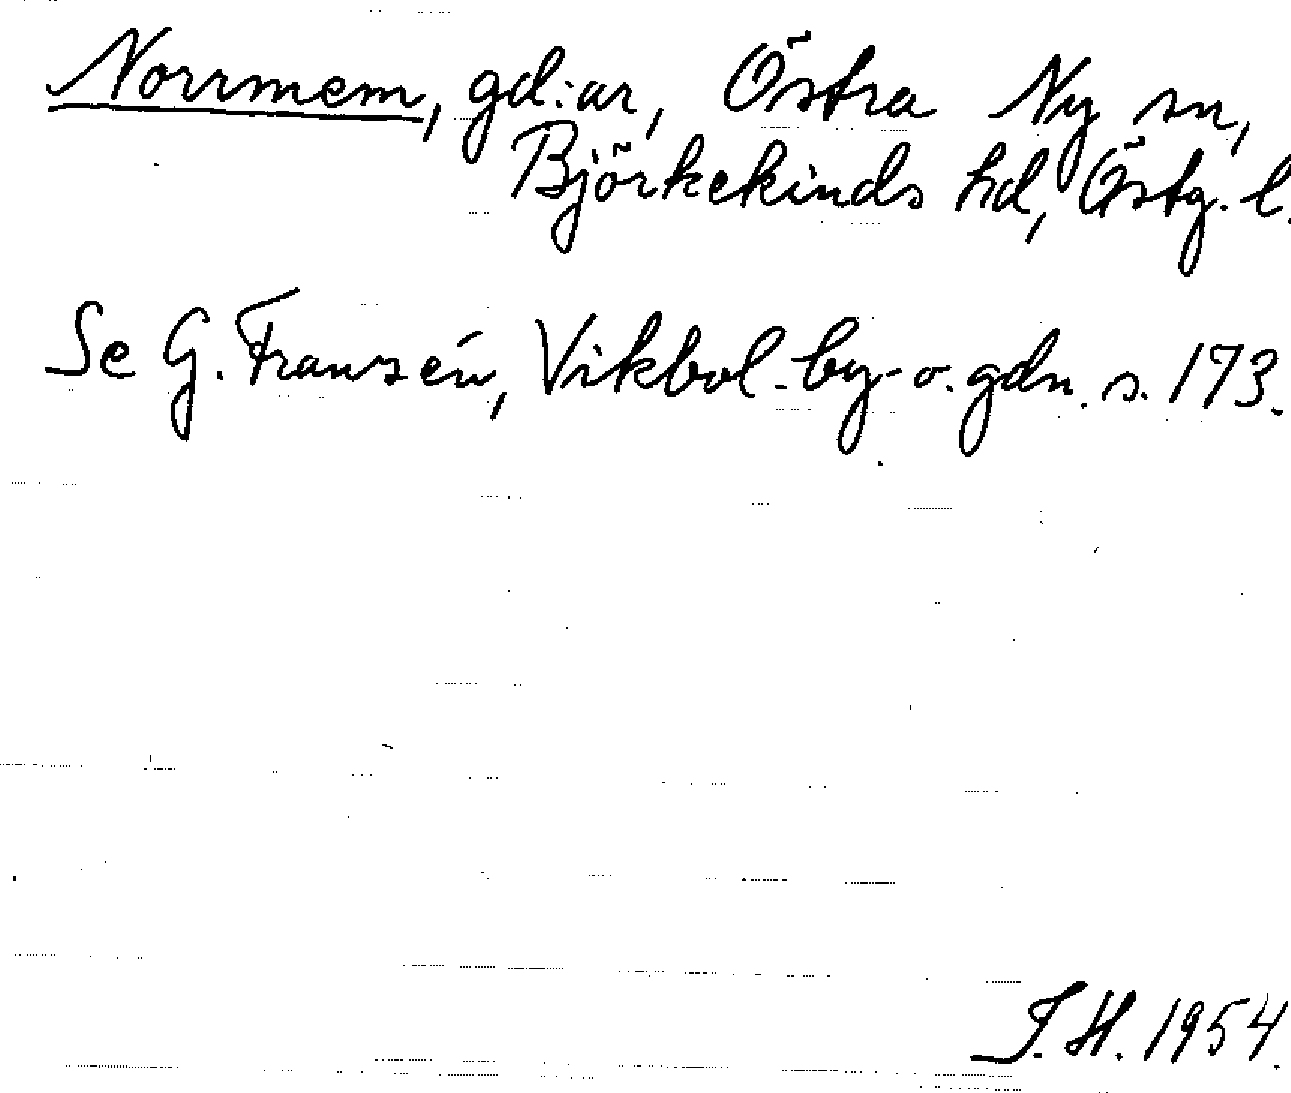 Norrmem, gd:ar, Östra Ny sn,
Björkekinds hd, Östg. l.
Se G. Franzén, Vikbol. by- o. gdn. s. 173.
I. H. 1954.